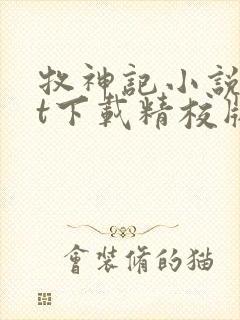 牧神記小說
t下載精校版
會裝脩的猫